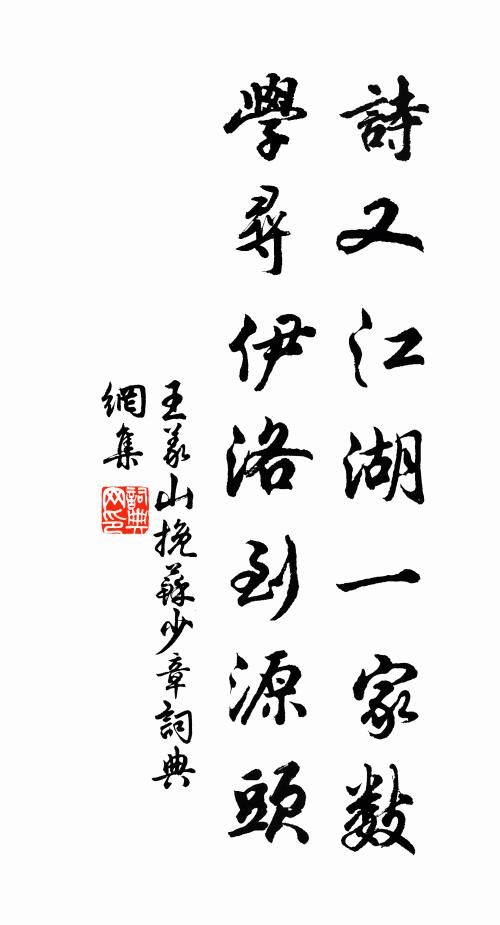 詩又江湖一家数
學尋伊洛到源頭
王義山挽蘇少章詞典
網集
詞典網印